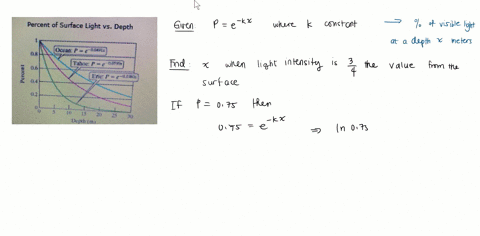 Percent of Surface Light vs. Depth
Percent
1
0.8
0.6
0.4
0.2
0
0 5 10 15 20 25 30
Given P = e^-kx where k constant → % of visible light
at a depth x meters
Find: x when light intensity is 3/4 the value from the
surface
If P = 0.75 then
0.75 = e^-kx ⇒ ln 0.75